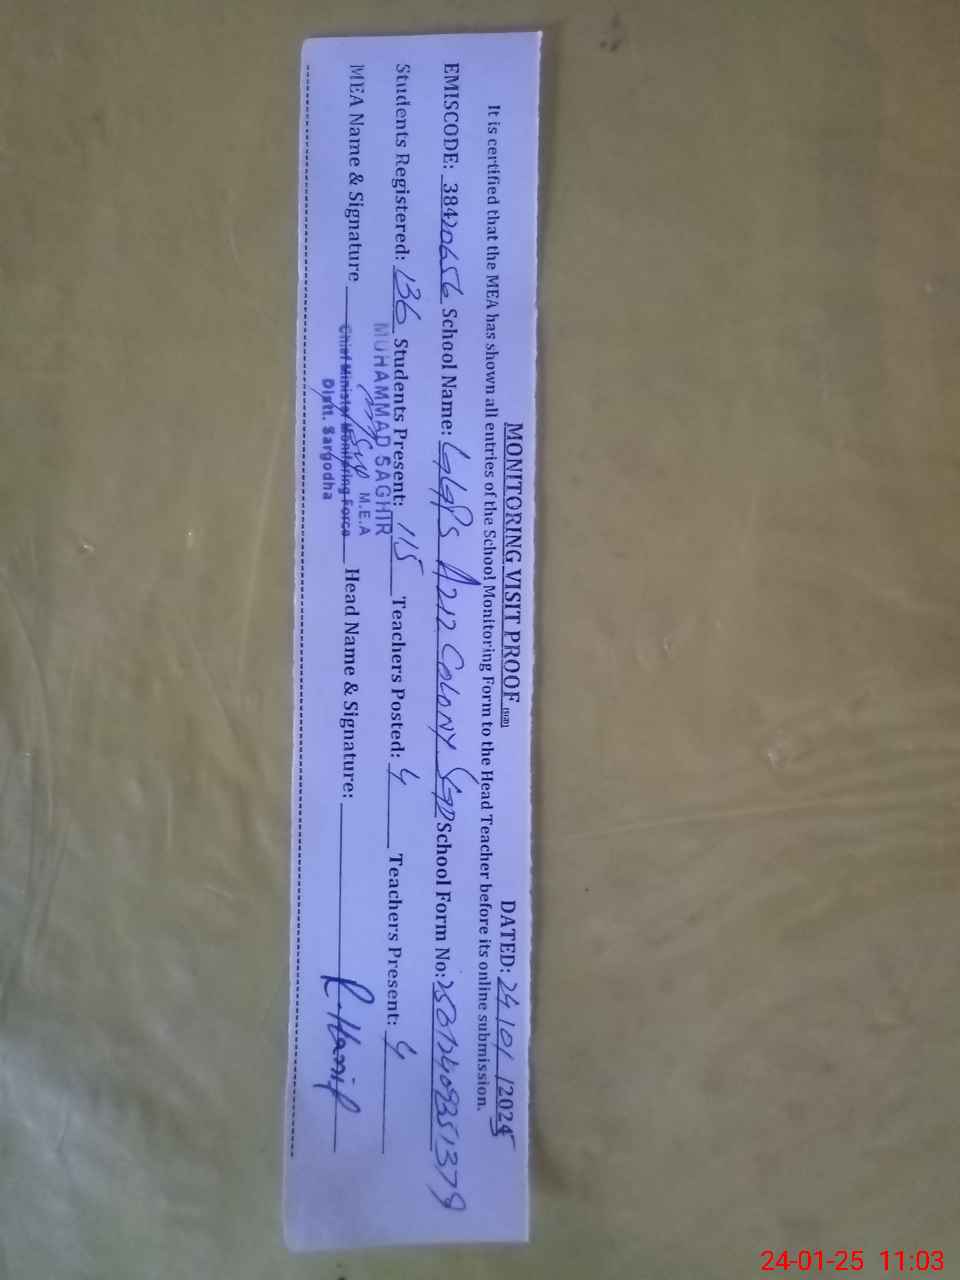 MONITORING VISIT PROOF DATED: 24/01/2025
It is certified that the MEA has shown all entries of the School Monitoring Form to the Head Teacher before its online submission.
EMISCODE: 38420656 School Name: GGPS A212 COLONY SGD School Form No:
Students Registered: 136 Students Present: 115 Teachers Posted: 4 Teachers Present: 4
MEA Name & Signature Head Name & Signature: R. Hanif
MUHAMMAD SAGHIR
M.E.A
Chief Minister Monitoring Force
Distt. Sargodha
24-01-25 11:03